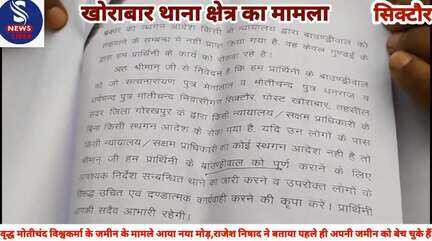 खोराबार थाना क्षेत्र का मामला
सिक्टौर
S
NEWS
प्रकार का स्थगन आदेश किसी भी न्यायालय द्वारा बाउण्ड्रीवाल को
के सम्बन्ध में नहीं प्राप्त किया गया है, वह केवल गुण्डई के
द्वारा हम प्रार्थिनी के कार्य को रोकवा रहे है।
अतः श्रीमान् जी से निवेदन है कि हम प्रार्थिनी के बाउण्ड्रीवाल
को जो सत्यनारायण पुत्र व मोतीचन्द पुत्र धनराज व
पुत्र मोतीचन्द निवासीगण सिक्टौर, पोस्ट खोराबार, तहसील
सदर जिला गोरखपुर के द्वारा किसी न्यायालय/सक्षम प्राधिकारी के
बिना किसी स्थगन आदेश के रोका गया है, यदि उन लोगों के पास
किसी न्यायालय/सक्षम प्राधिकारी का कोई स्थगन आदेश नहीं है तो
श्रीमान् जी हम प्रार्थिनी के बाउण्ड्रीवाल को पूर्ण कराने के लिए
आवश्यक निर्देश सम्बन्धित थाने को जारी करने व उपरोक्त लोगों के
विरूद्ध उचित एवं दण्डात्मक कार्यवाही करने की कृपा करें। प्रार्थिनी
आपकी सदैव आभारी रहेगी।
वृद्ध मोतीचंद विश्वकर्मा के जमीन के मामले आया नया मोड़,राजेश निषाद ने बताया पहले ही अपनी जमीन को बेच चुके हैं